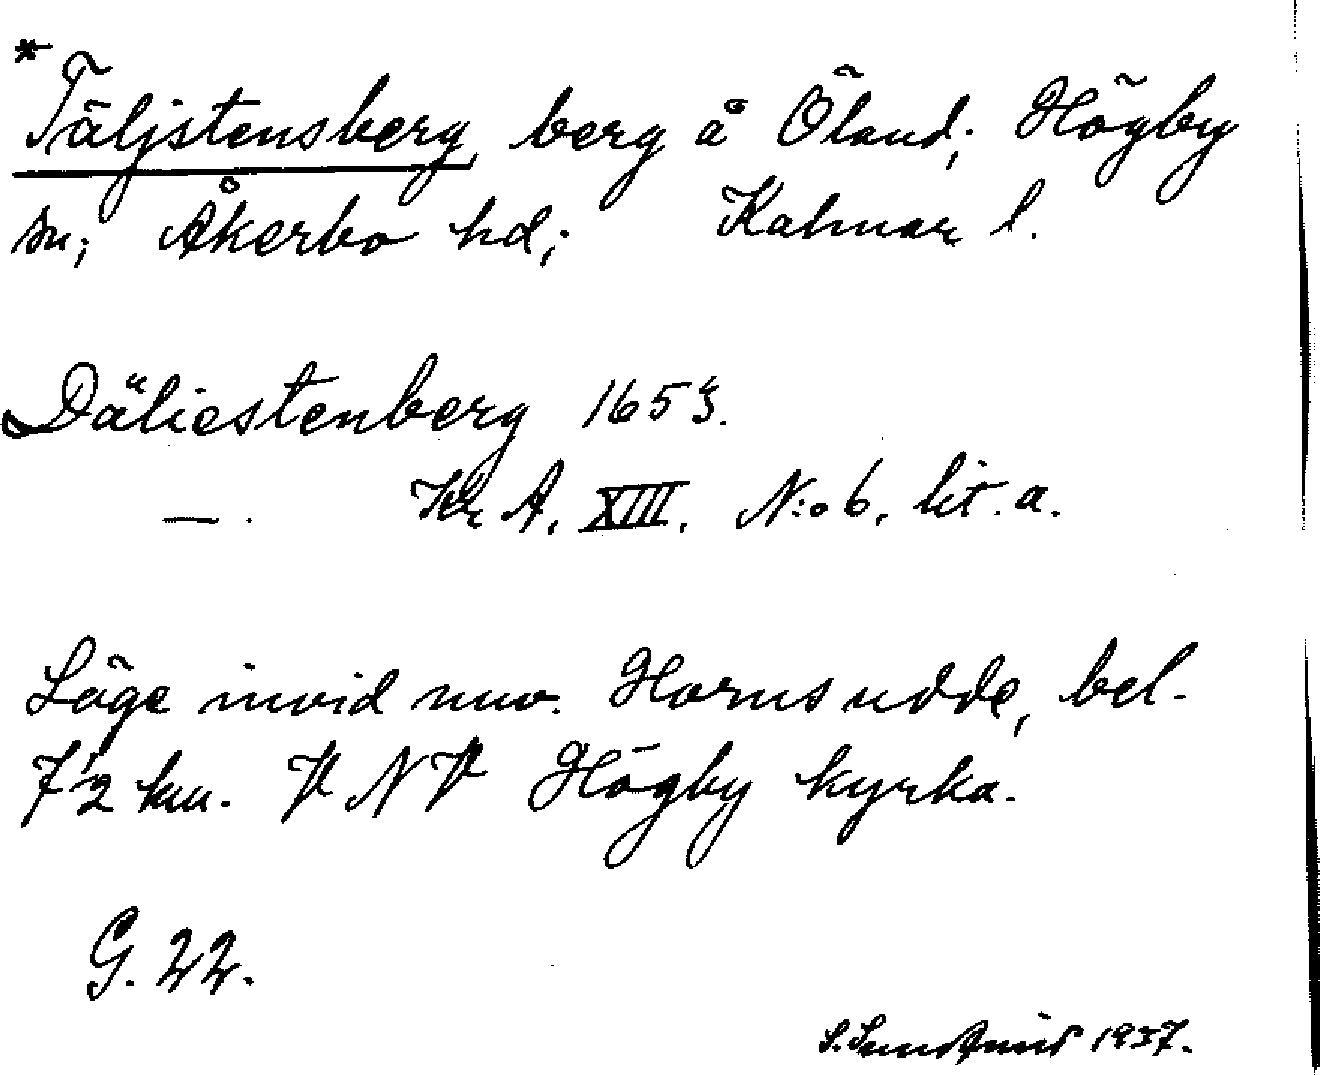 *Täljstensberg, berg å Öland; Högby
sn; Åkerbo hd; Kalmar l.
Däliestenberg 1653.
—. Kr A. XIII. N:o 6. lit. a.
Läge invid nuv. Horns udde, bel.
7 1/2 km. V N V Högby kyrka.
G. 22.
1937.